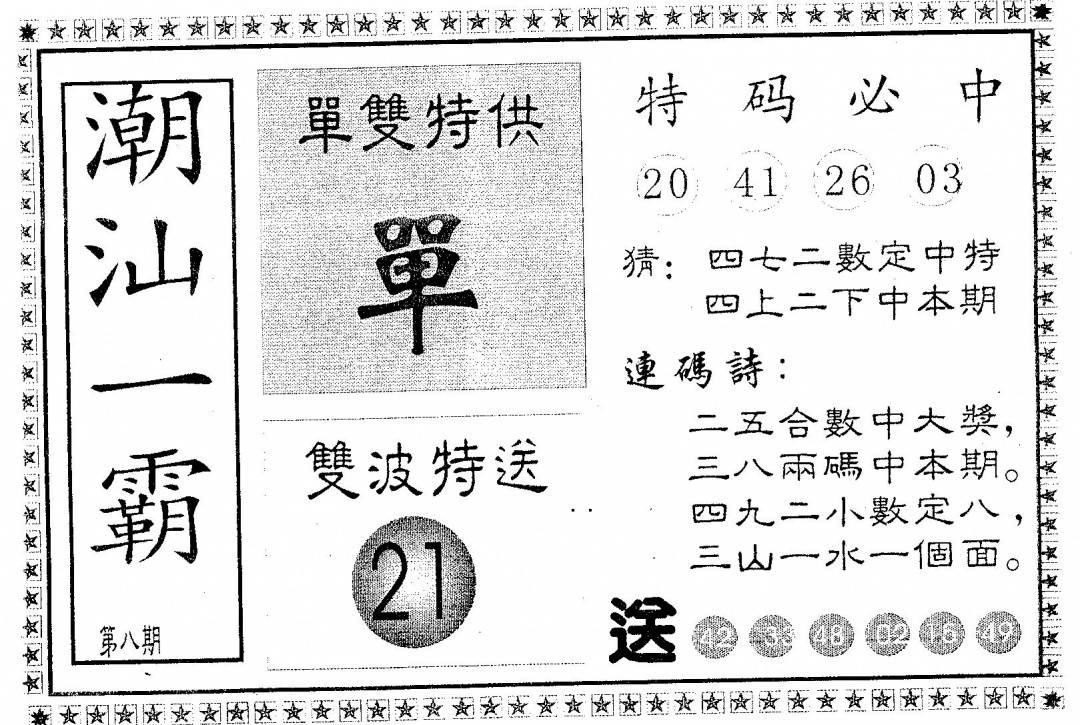 潮汕一霸
第八期
單雙特供
單
雙波特送
21
特码必中
20 41 26 03
猜：四七二數定中特
四上二下中本期
連碼詩：
二五合數中大獎，
三八兩碼中本期。
四九二小數定八，
三山一水一個面。
送 42 33 48 02 16 49